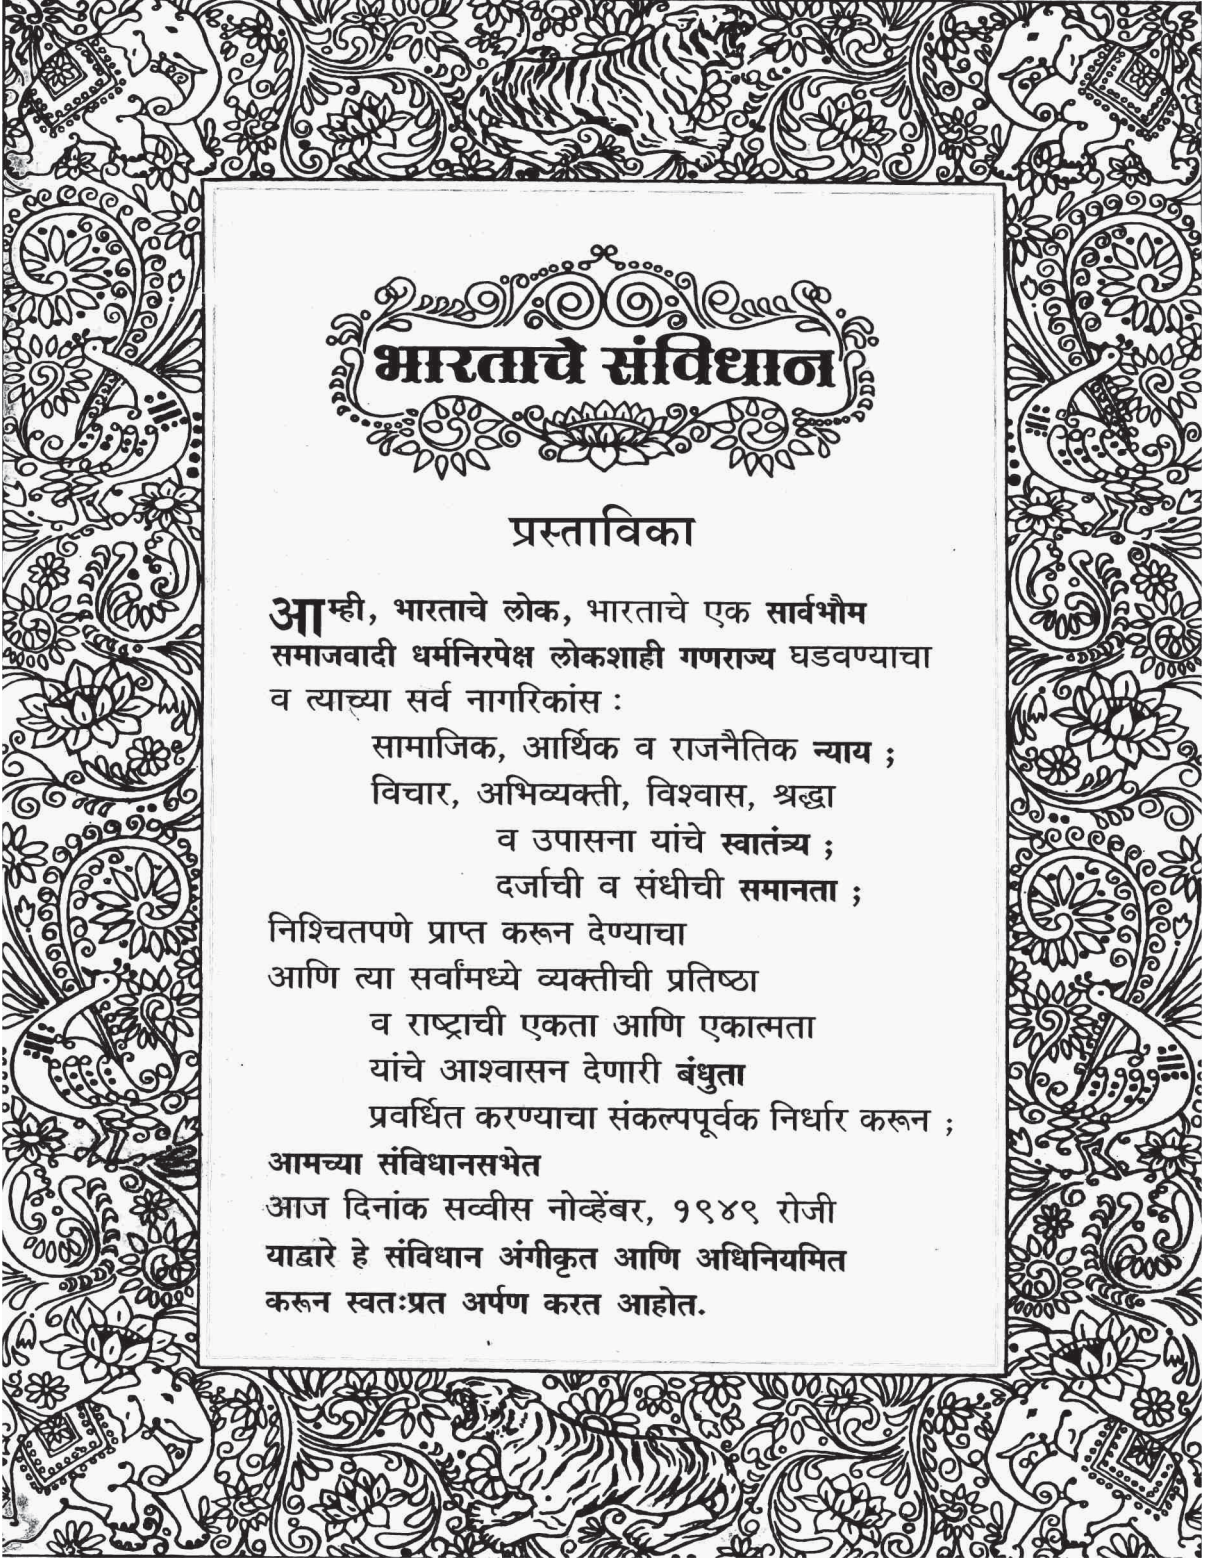 भारताचे संविधान
प्रस्ताविका
आम्ही, भारताचे लोक, भारताचे एक सार्वभौम
समाजवादी धर्मनिरपेक्ष लोकशाही गणराज्य घडवण्याचा
व त्याच्या सर्व नागरिकांस :
सामाजिक, आर्थिक व राजनैतिक न्याय ;
विचार, अभिव्यक्ती, विश्वास, श्रद्धा
व उपासना यांचे स्वातंत्र्य ;
दर्जाची व संधीची समानता ;
निश्चितपणे प्राप्त करून देण्याचा
आणि त्या सर्वांमध्ये व्यक्तीची प्रतिष्ठा
व राष्ट्राची एकता आणि एकात्मता
यांचे आश्वासन देणारी बंधुता
प्रवर्धित करण्याचा संकल्पपूर्वक निर्धार करून ;
आमच्या संविधानसभेत
आज दिनांक सव्वीस नोव्हेंबर, १९४९ रोजी
याद्वारे हे संविधान अंगीकृत आणि अधिनियमित
करून स्वतःप्रत अर्पण करत आहोत.